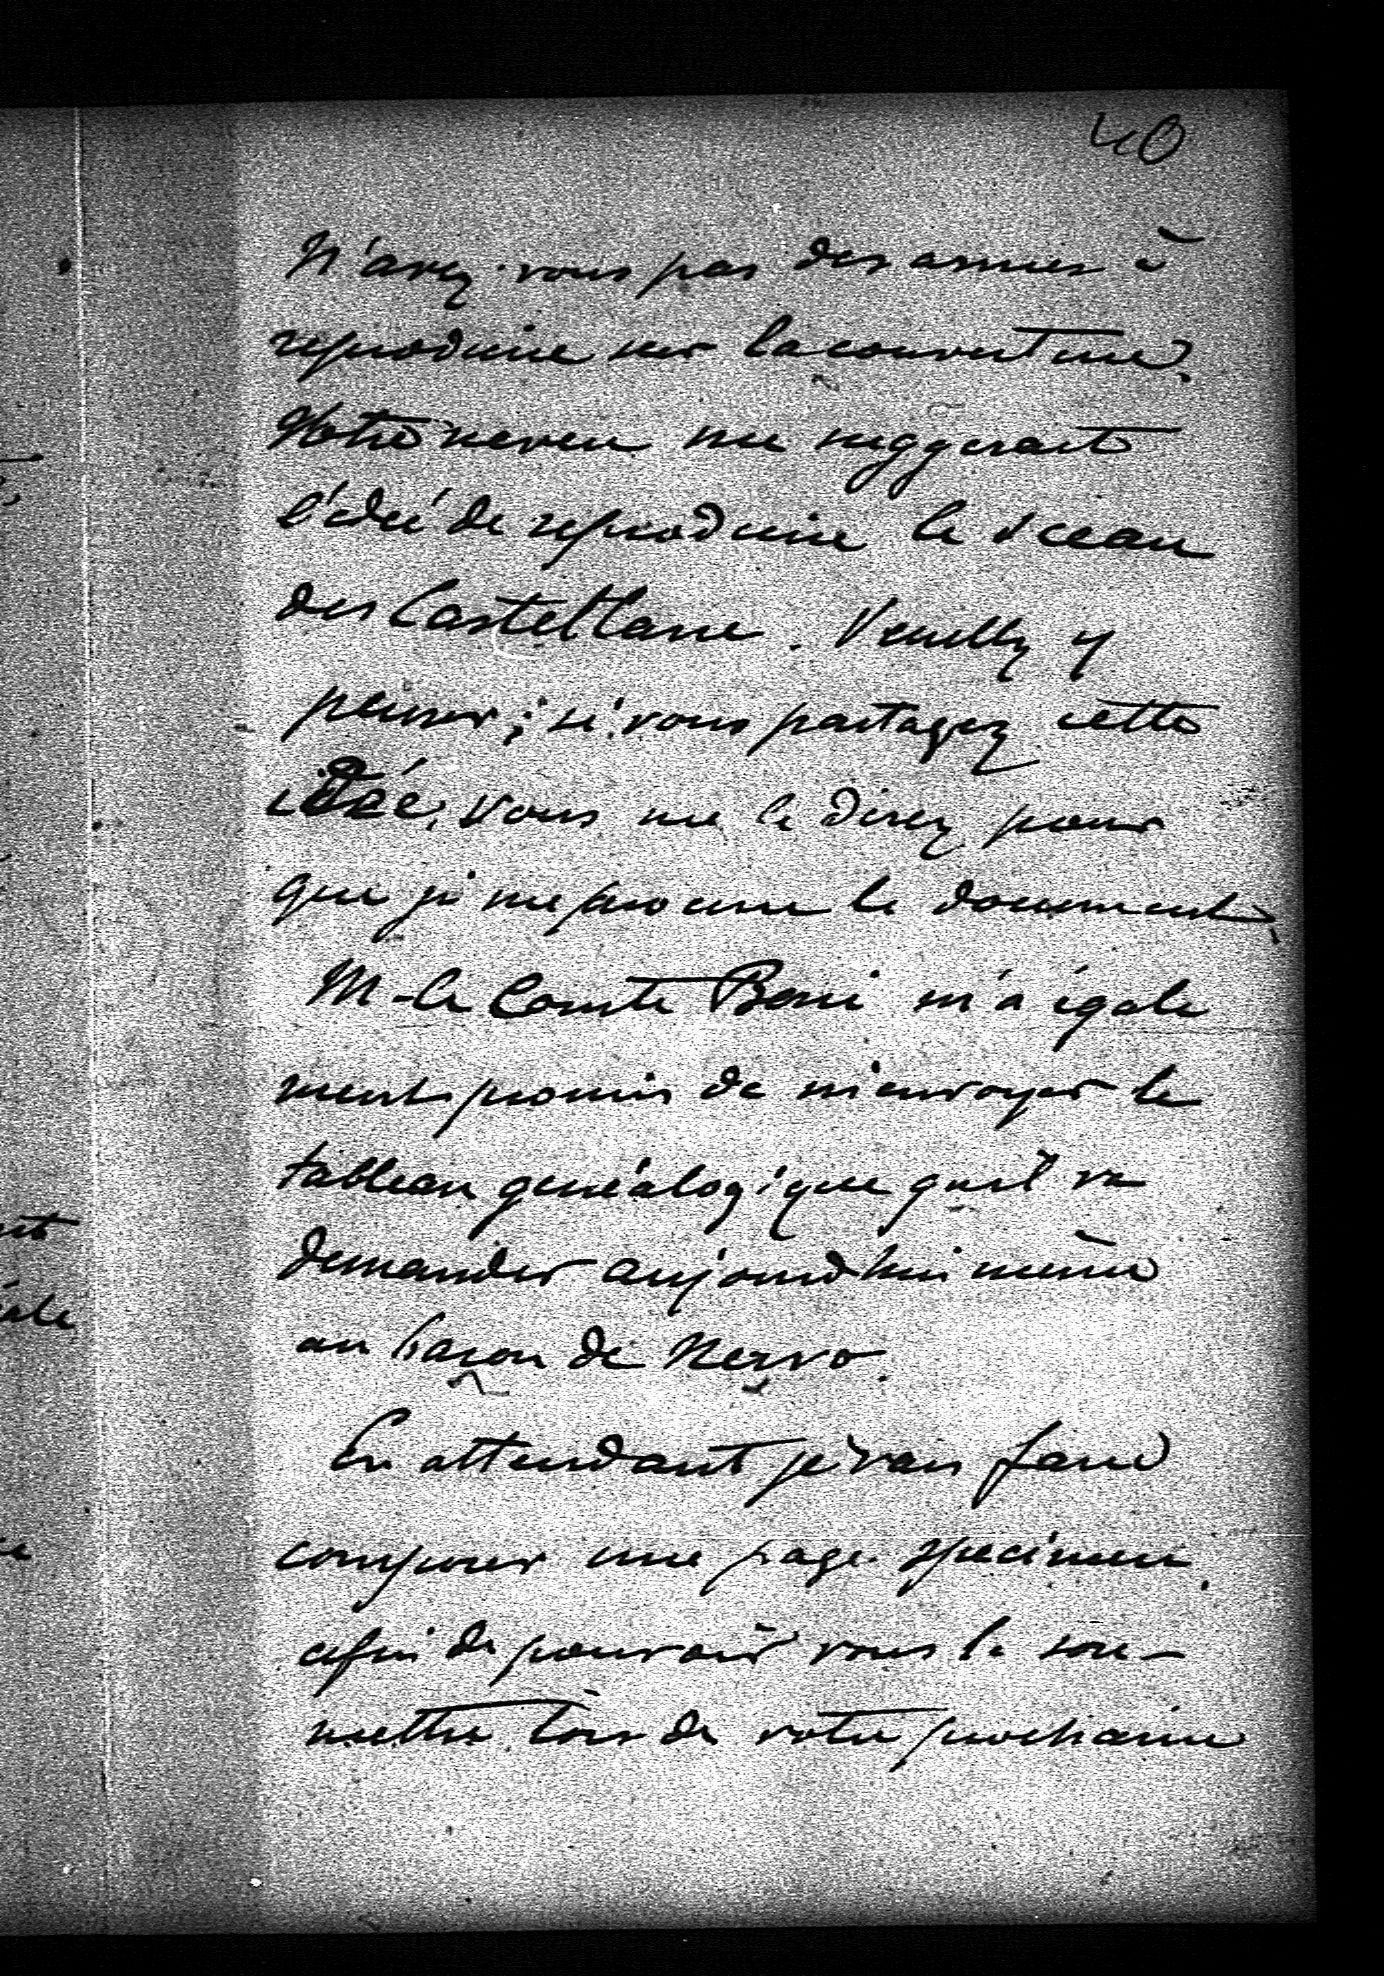 40
N'avez-vous pas des armes à
reproduire sur la couverture.
Notre neveu me suggerait
l'idée de reproduire le sceau
des Castellane. Veuillez y
penser; si vous partagez cette
idée, vous me le direz pour
que je me procure le document.
M. le Comte Boni m'a égale
ment promis de m'envoyer le
tableau généalogique qu'il va
demander aujourd'hui même
au baron de Nervo.
En attendant je vais faire
composer une page specimen
afin de pouvoir vous le sou-
mettre lors de votre prochaine